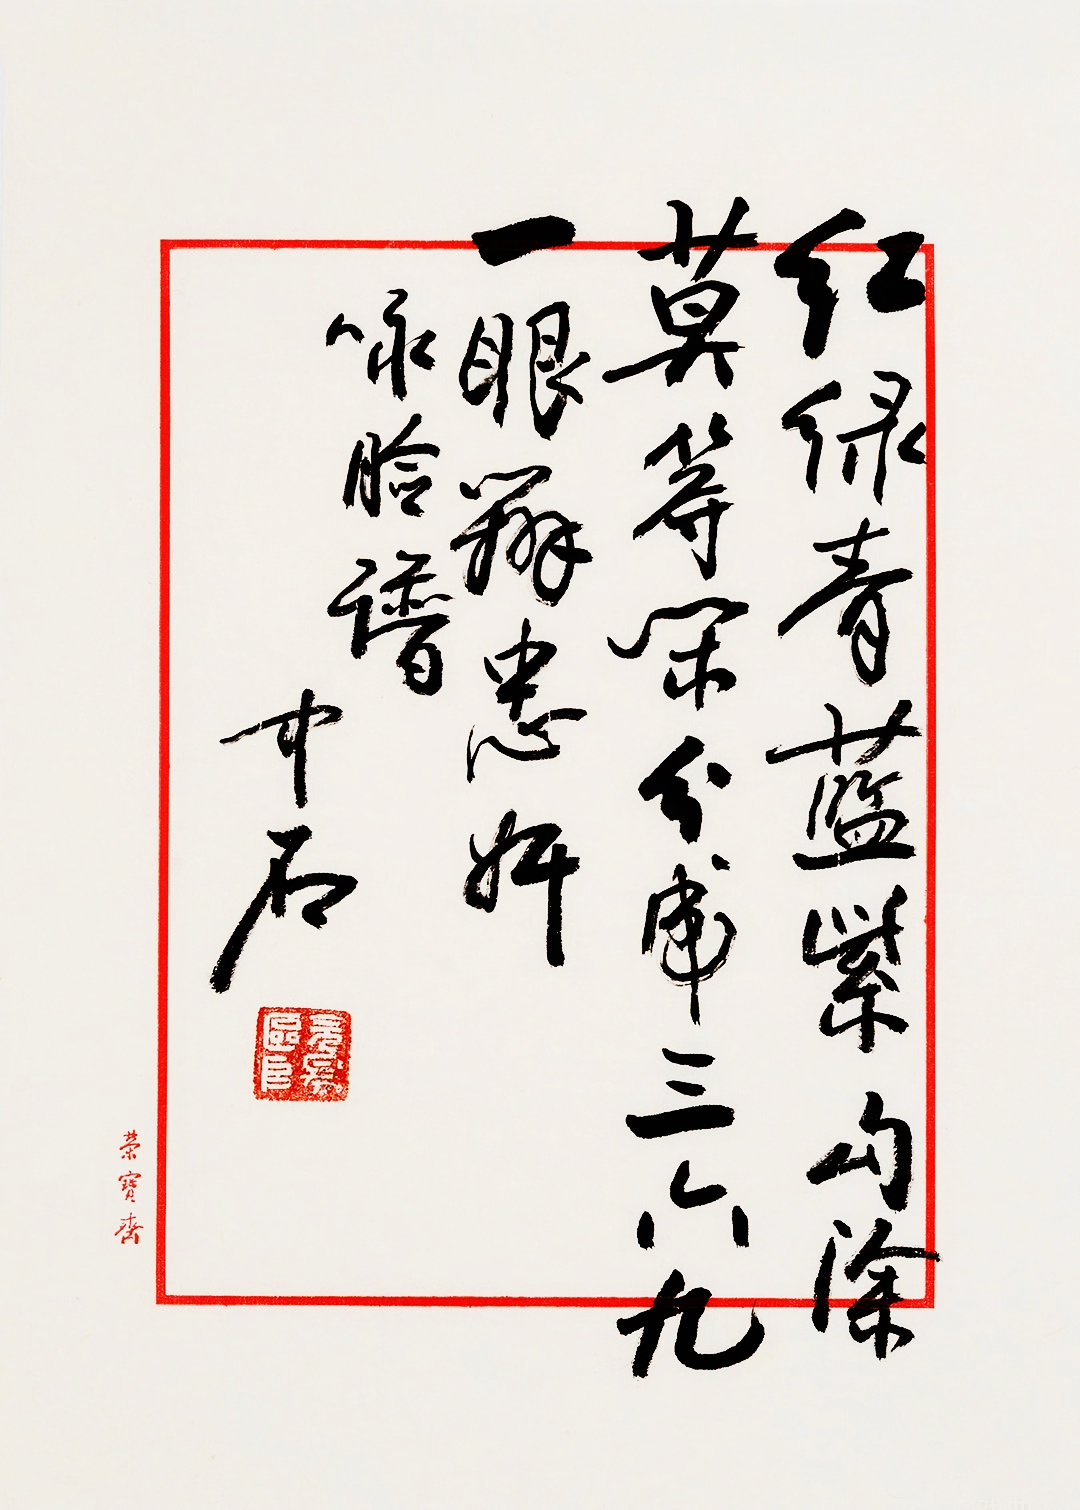 红绿青蓝紫勾涂
莫等闲分三六九
一眼辨忠奸
咏脸谱
中石
荣寶齋